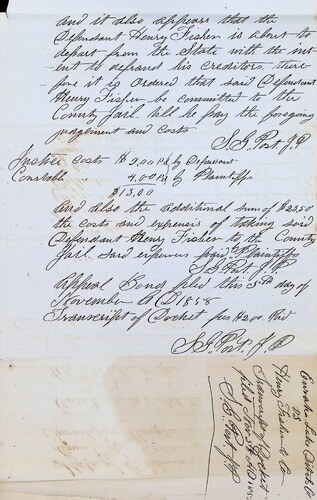 and it also appears that the
Defendant Henry Fisher is about to
depart from the State with the int-
ent to defraud his creditors there-
fore it is Ordered that said Defendant
Henry Fisher be committed to the
County Jail till he pay the foregoing
judgement and costs
S. G. Post J. P.
Justice Costs $9.00 Pd by Defendant
Constable " 4.00 Pd by Plaintiffs
$13.00
And also the additional sum of $23.50
the costs and expenses of taking said
Defendant Henry Fisher to the County
Jail said expenses paid by Plaintiffs
S. G. Post, J. P.
Appeal Bond filed this 5th day of
November A D 1858
Transcript of Docket fees $2.00
S. G. Post, J. P.
Eureka Lake
vs
Henry Fisher & Co
Transcript of Docket
filed Nov
S. G. Post J P